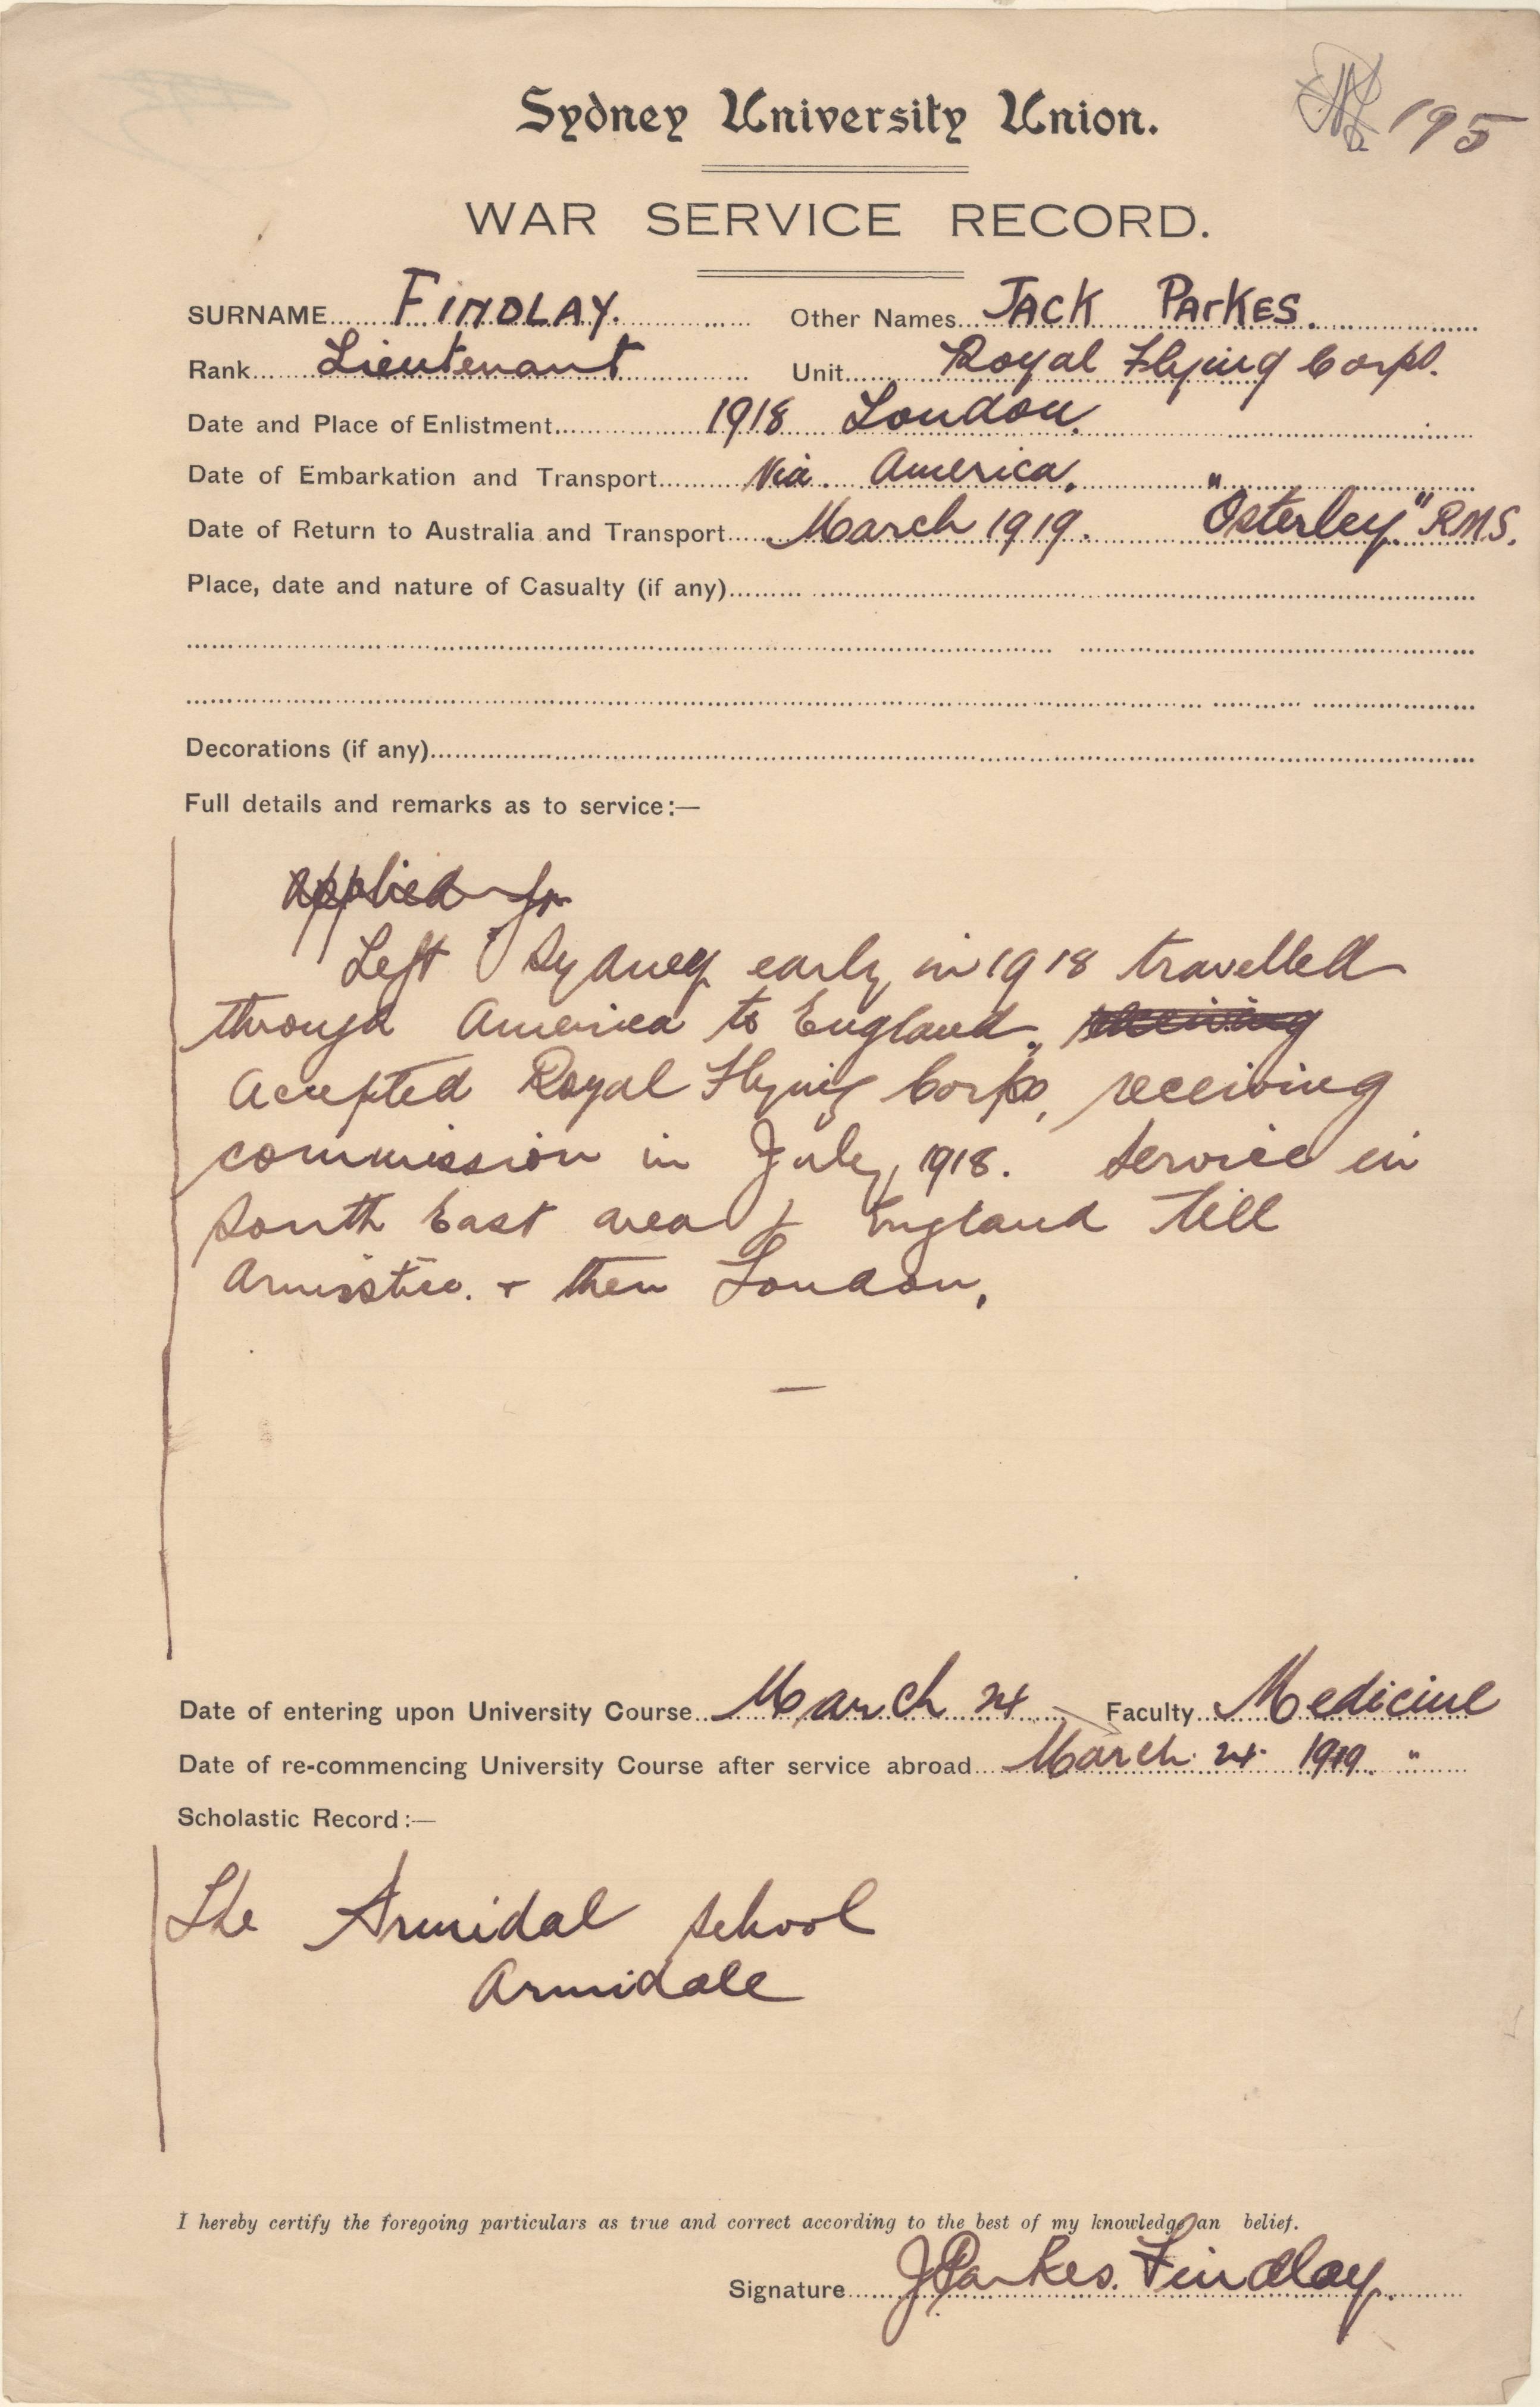 195
Sydney University Union.
WAR SERVICE RECORD.
SURNAME FINDLAY. Other Names JACK PARKES.
Rank Lieutenant Unit Royal Flying Corps.
Date and Place of Enlistment 1918 London.
Date of Embarkation and Transport Via. America.
Date of Return to Australia and Transport March 1919. "Osterley" RMS.
Place, date and nature of Casualty (if any)
Decorations (if any)
Full details and remarks as to service:—
Applied for
Left Sydney early in 1918 travelled
through America to England, receiving
Accepted Royal Flying Corps, receiving
commission in July, 1918. Service in
South East area of England till
Armisstice. + then London.
—
Date of entering upon University Course March 24 Faculty Medicine
Date of re-commencing University Course after service abroad March 24 1919 "
Scholastic Record:—
The Armidal School
Armidale
I hereby certify the foregoing particulars as true and correct according to the best of my knowledge an belief.
Signature J Parkes. Findlay.